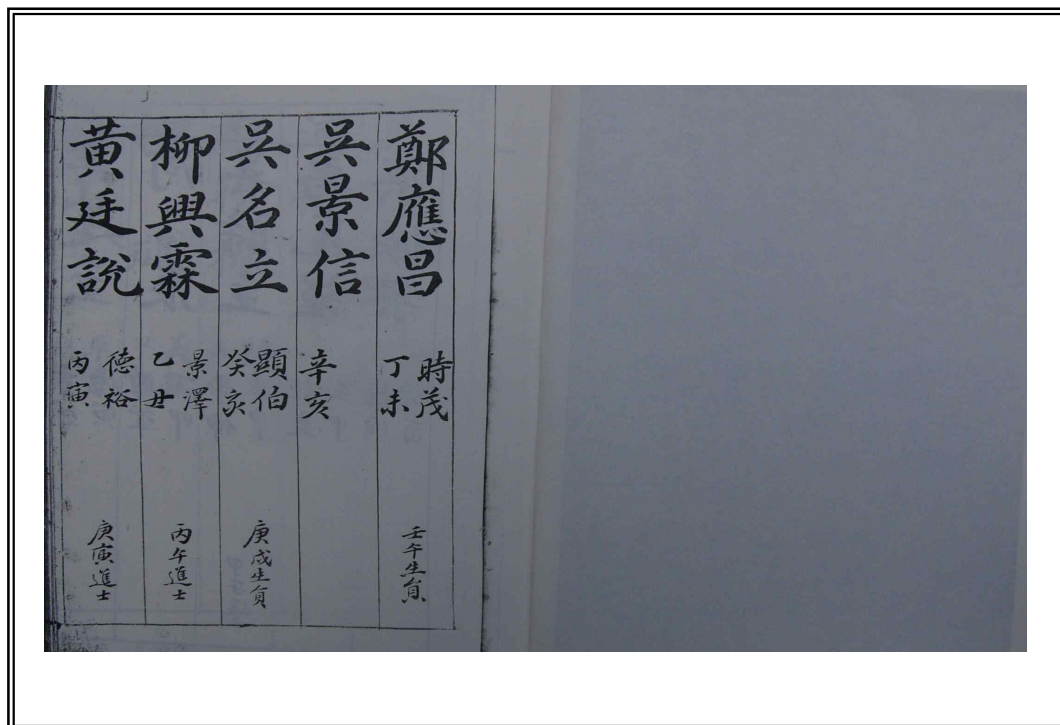 鄭應昌 時茂 丁未 壬午生員
吳景信 辛亥
吳名立 顯伯 癸亥 庚戌生員
柳興霖 景澤 乙丑 丙午進士
黃廷說 德裕 丙寅 庚寅進士